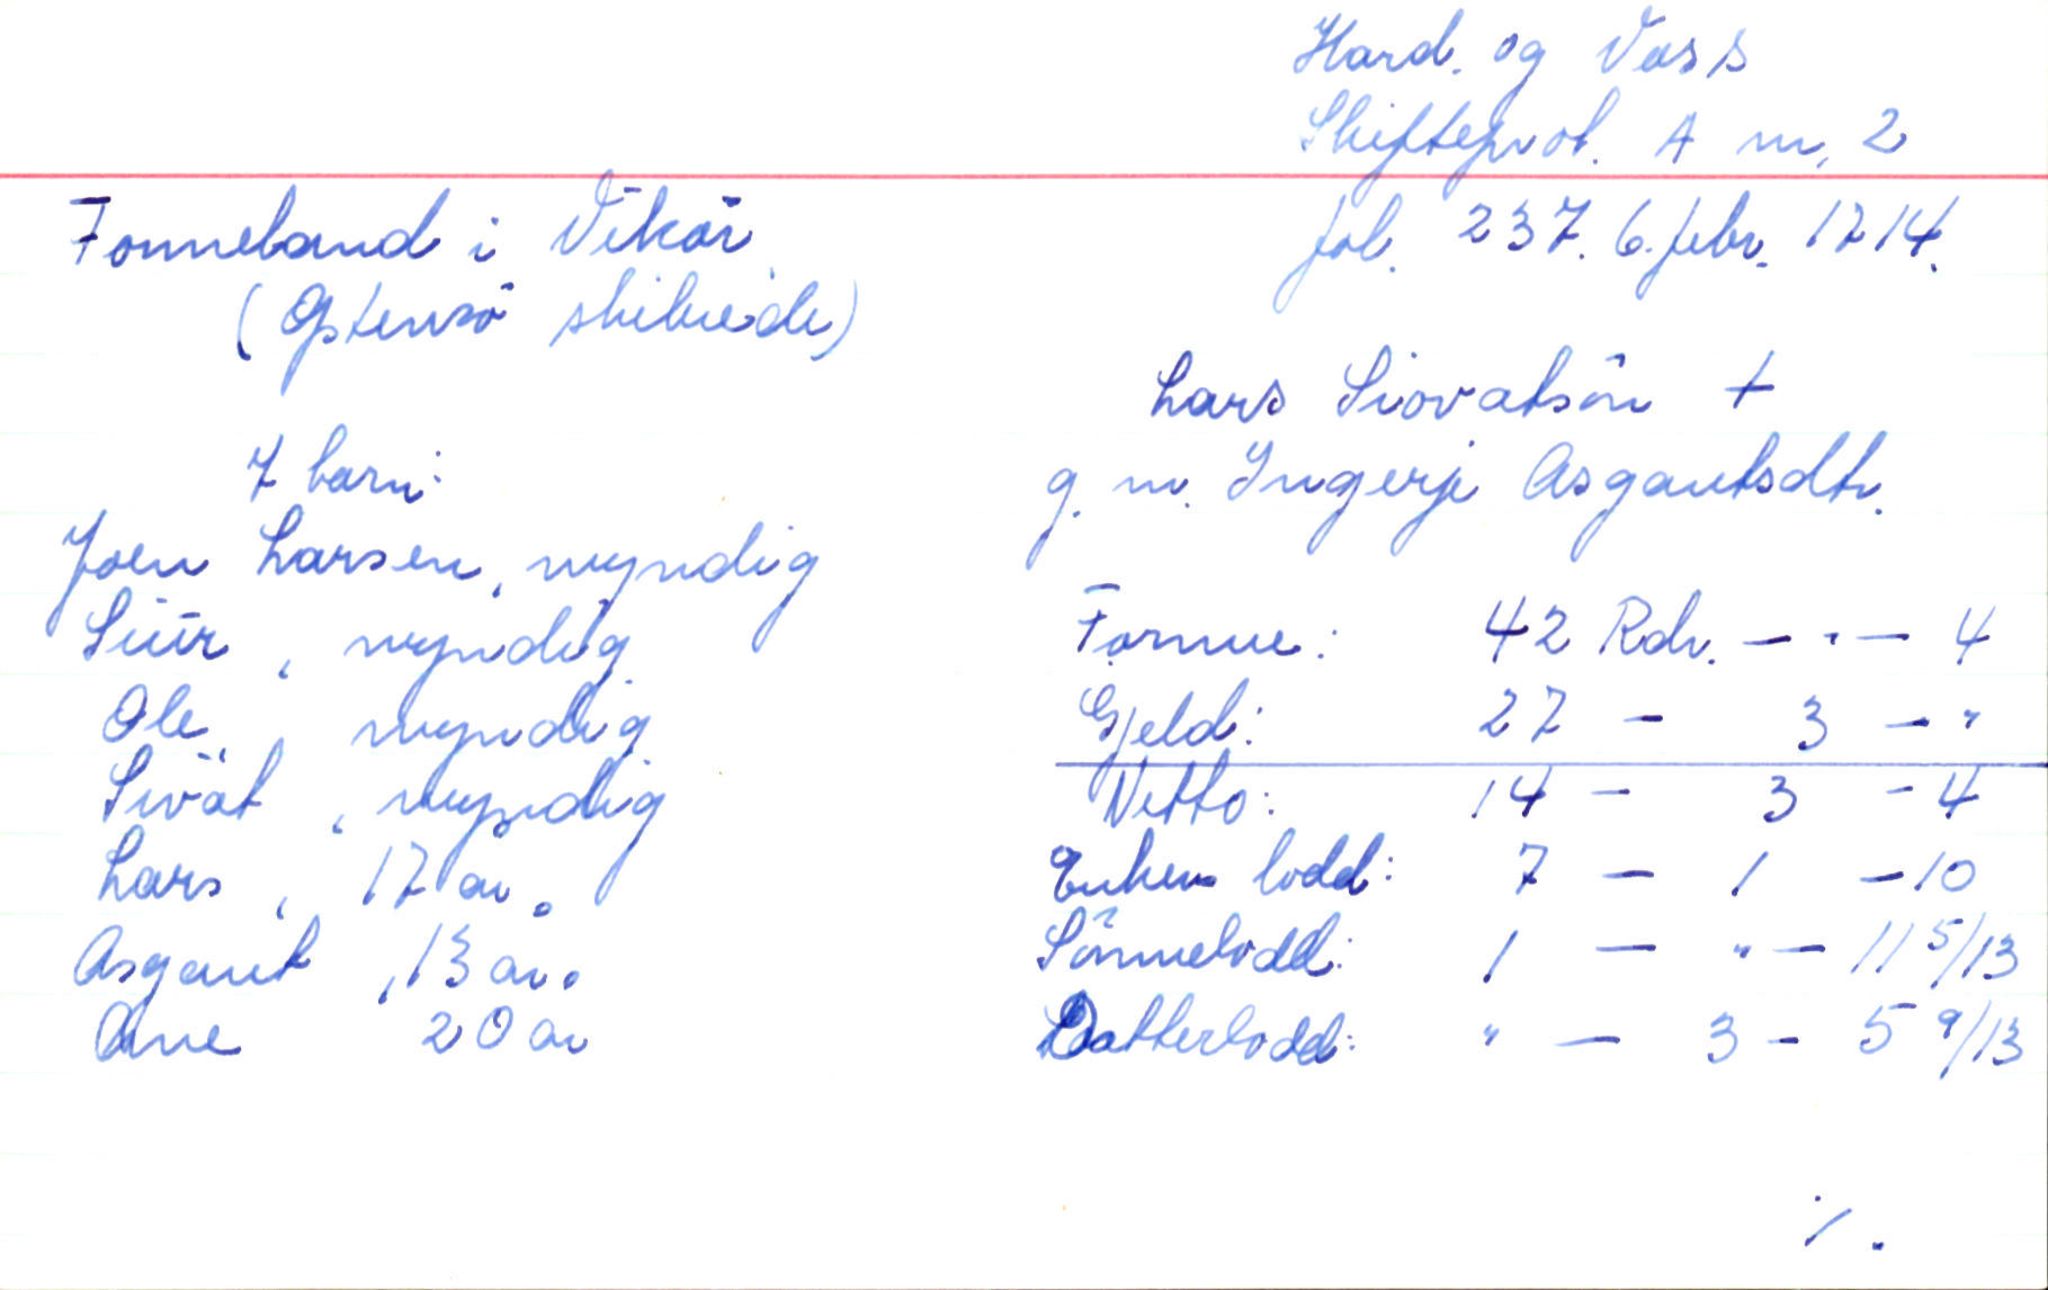 Hard. og Voss
Skifteprot. A nr. 2
fol. 237. 6. febr. 1714.
Fonneland i Vikör
(Østensö skibrede)
Lars Siovatsön †
g. m. Ingerje Asgautsdtr.
7 barn:
Joen Larsen, myndig
Siur, myndig
Ole, myndig
Sivat, myndig
Lars, 17 år.
Asgaut, 13 år.
Ane 20 år
Formue: 42 Rdr. - " - 4
Gjeld: 27 - 3 - "
Netto: 14 - 3 - 4
Enkens lodd: 7 - 1 - 10
Sönnelodd: 1 - " - 11 5/13
Datterlodd: " - 3 - 5 9/13
./.